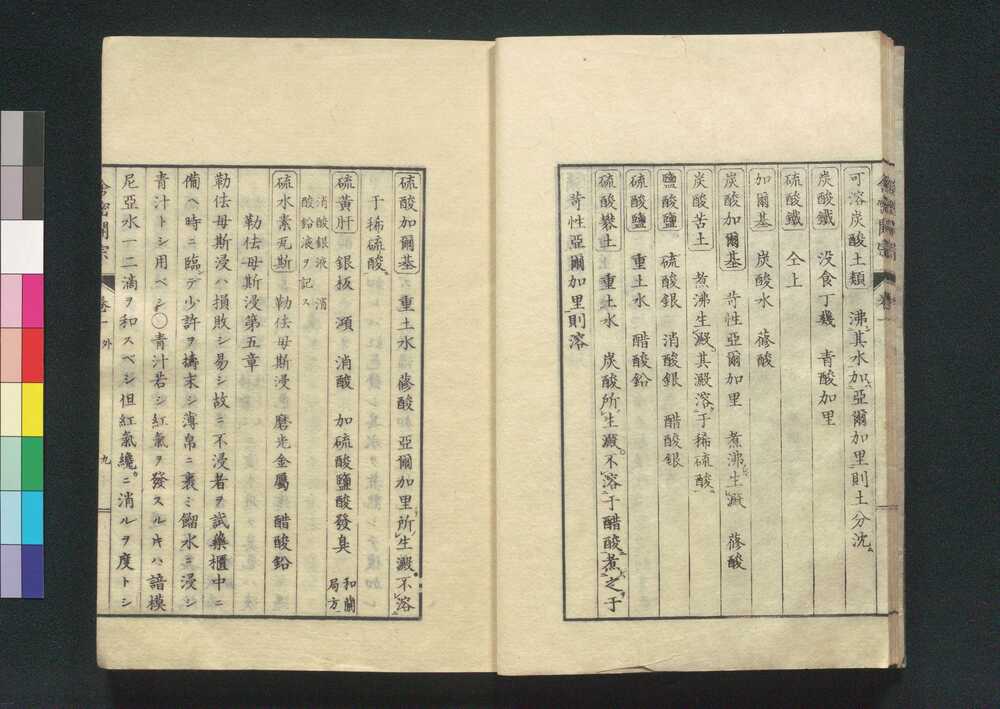 可溶炭酸土類　沸其水加亞爾加里則土分沈
炭酸鐵　没食丁幾　青酸加里
硫酸鐵　仝上
加爾基　炭酸水　蓚酸
炭酸加爾基　苛性亞爾加里　煮沸生澱　蓚酸
炭酸苦土　煮沸生澱其澱溶于稀硫酸
鹽酸鹽　硫酸銀　消酸銀　醋酸銀
硫酸鹽　重土水　醋酸鉛
硫酸礬土　重土水　炭酸所生澱不溶于醋酸煮之于
苛性亞爾加里則溶
硫酸加爾基　重土水　蓚酸　亞爾加里所生澱不溶
于稀硫酸
硫黄肝　銀板　滴消酸　加硫酸鹽酸發臭　和蘭局方
硫水素瓦斯　勒佉母斯浸　磨光金屬　醋酸鉛
消酸銀液　消酸鉛液ヲ記ス
勒佉母斯浸第五章
勒佉母斯浸ハ損敗シ易シ故ニ不浸者ヲ試藥櫃中ニ
備ヘ時ニ臨テ少許ヲ擣末シ薄帛ニ裹ミ餾水ニ浸シ
青汁トシ用ベシ〇青汁若シ紅氣ヲ發スル片ハ諳模
尼亞水一二滴ヲ和スベシ但紅氣纔ニ消ルヲ度トシ
舎密開宗
卷一外
九